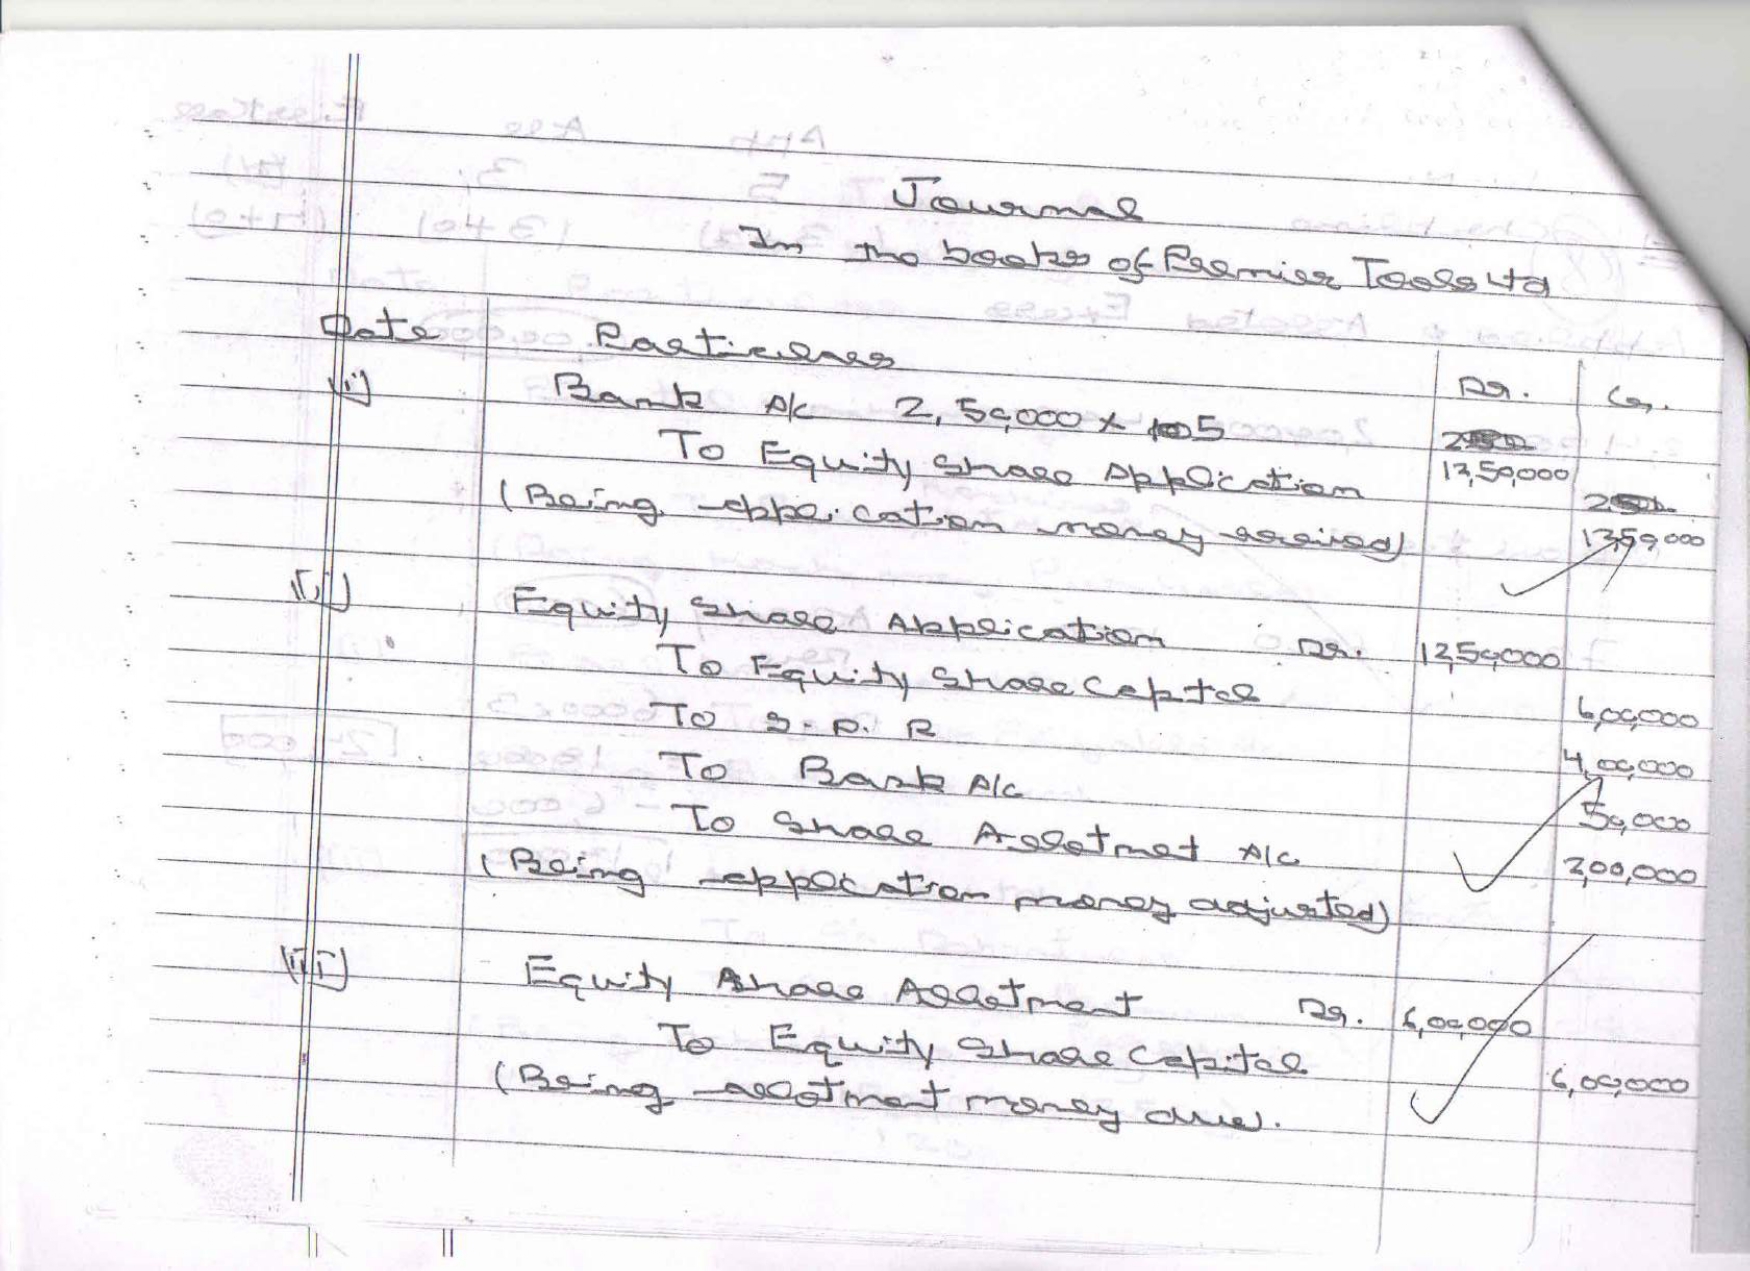 Journal
In the books of Premier Tools Ltd
Date Particulars Dr. Cr.
(i) Bank A/c 2,50,000 x 5 12,50,000
To Equity Share Application 12,50,000
(Being application money received)
(ii) Equity Share Application Dr. 12,50,000
To Equity Share Capital 6,00,000
To S.P.R 4,00,000
To Bank A/c 50,000
To Share Allotment A/c 2,00,000
(Being application money adjusted)
(iii) Equity Share Allotment Dr. 6,00,000
To Equity Share Capital 6,00,000
(Being allotment money due).